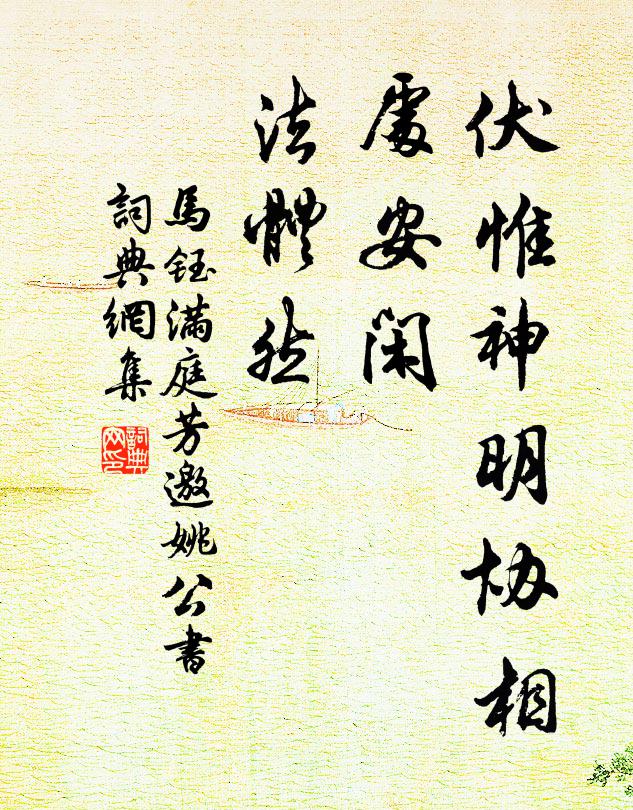 伏惟神明协相
處安閑
法體然
馬鈺滿庭芳邀姚公書
詞典網集
詞典
网印